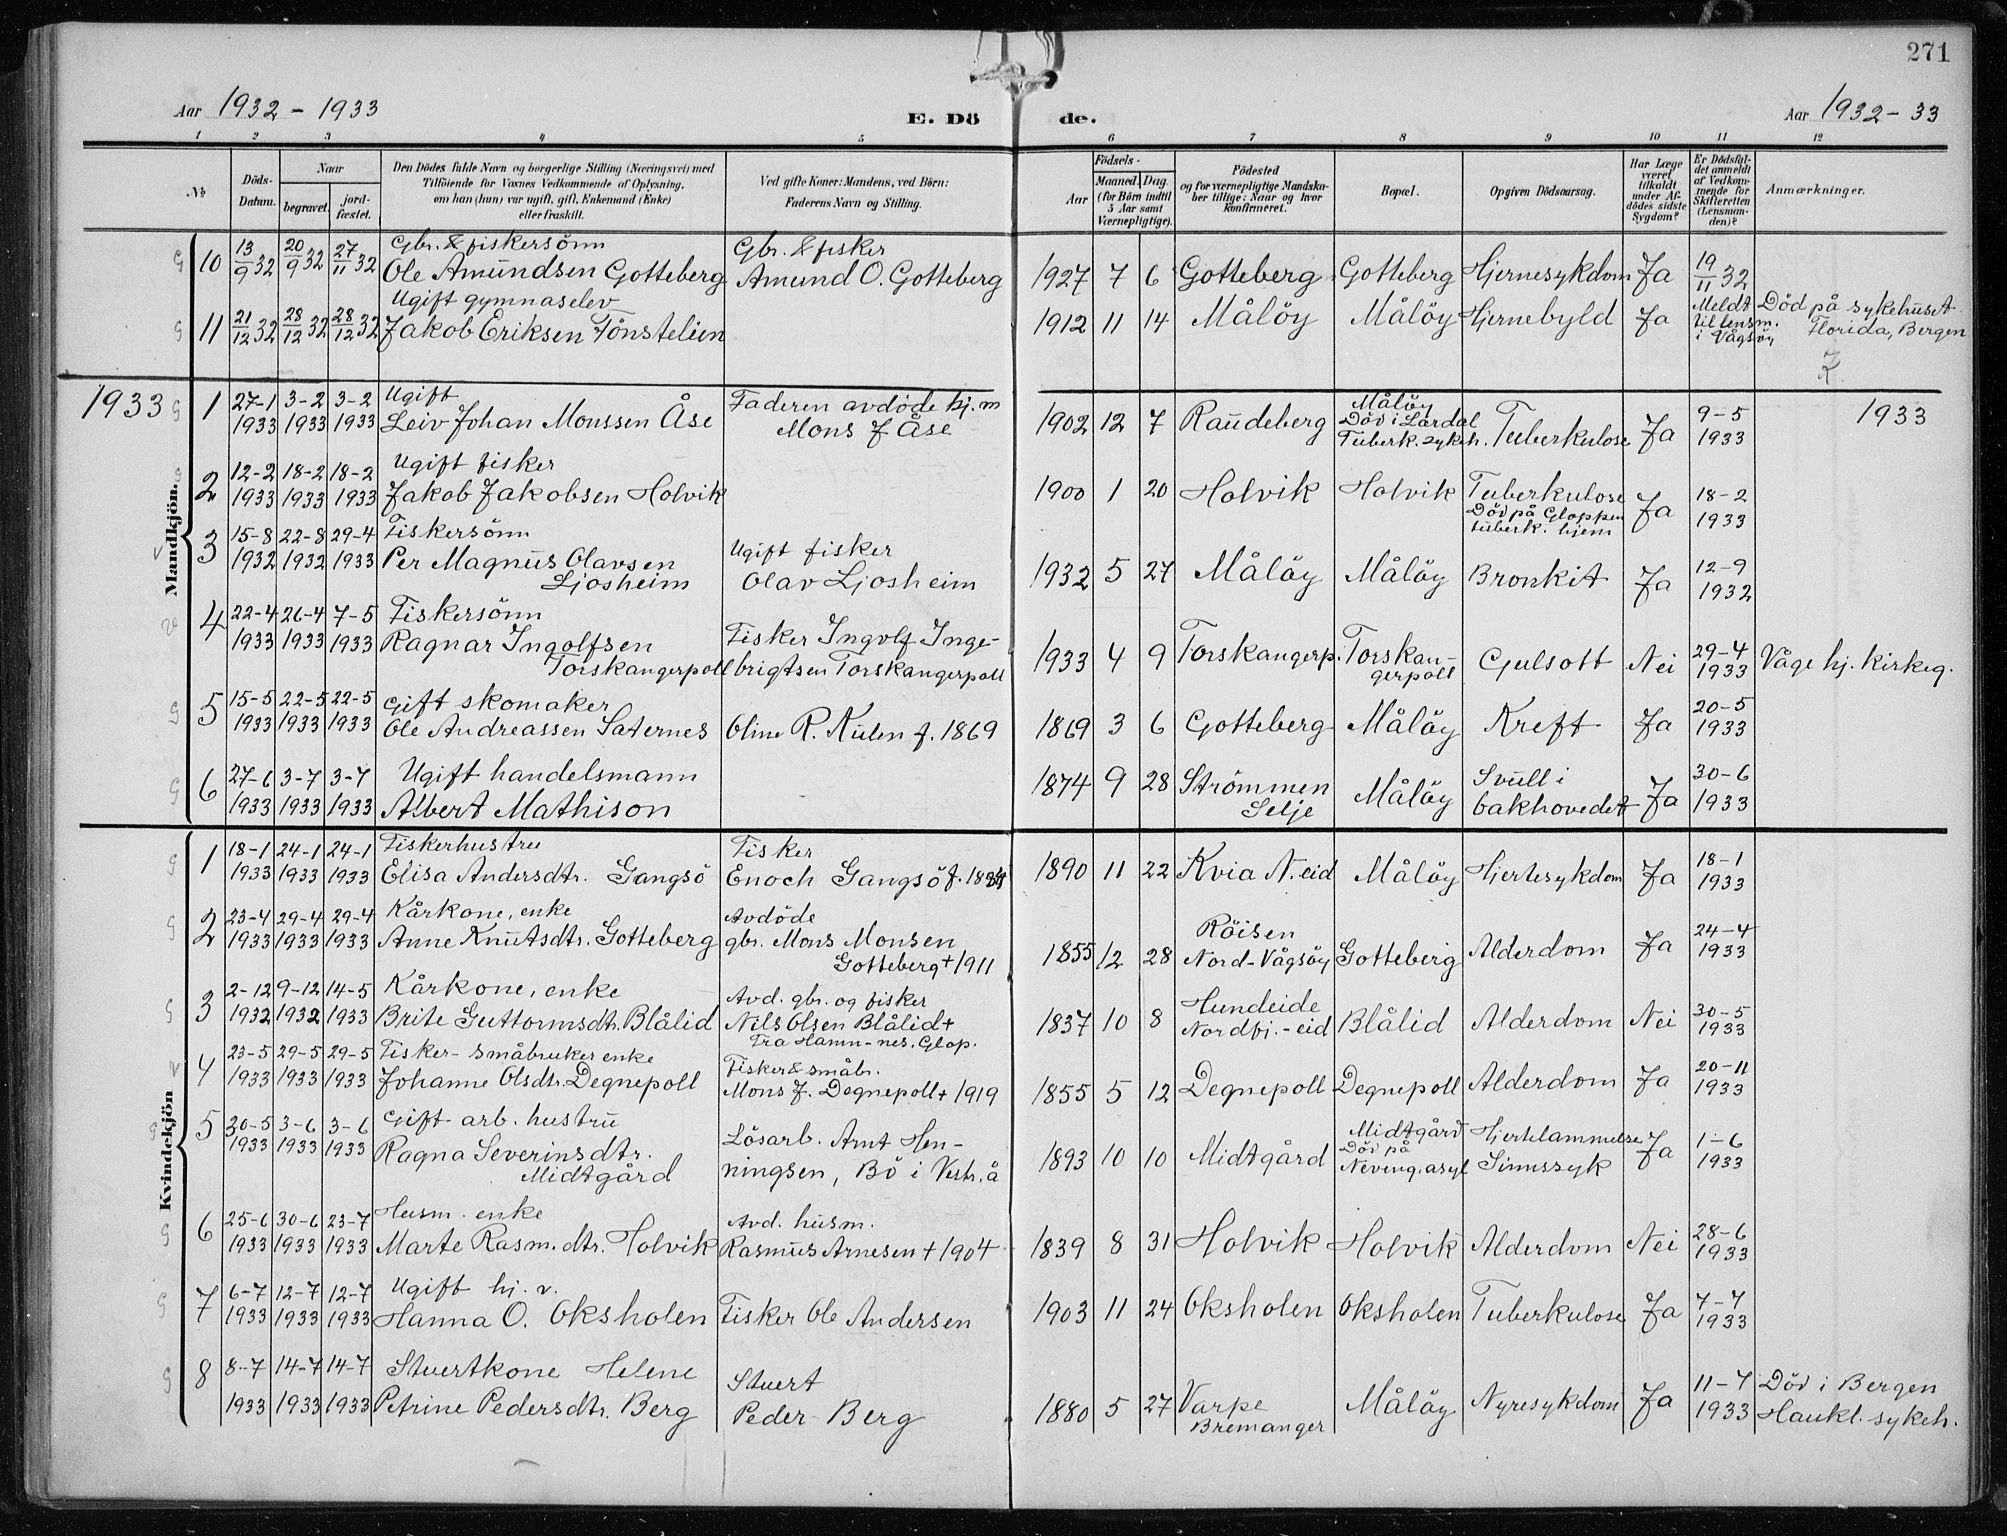 271
Aar 1932 - 1933
E. Dö de.
Aar 1932 - 33
1 2 3 4 5 6 7 8 9 10 11 12
No
Döds-Datum.
Naar
begravet.
jordfæstet.
Den Dödes fulde Navn og borgerlige Stilling (Næringsvei) med
Tilföiende for Voxnes Vedkommende af Oplysning,
om han (hun) var ugift, gift, Enkemand (Enke)
eller fraskilt.
Ved gifte Koner: Mandens, ved Börn:
Faderens Navn og Stilling.
Födsels-
Aar
Maaned. Dag.
(for Börn indtil
5 Aar samt
Værnepligtige).
Födested
og for værnepligtige Mandskaber tillige: Naar og hvor
konfirmeret.
Bopæl.
Opgiven Dödsaarsag.
Har Læge
været
tilkaldt
under Afdödes sidste
Sygdom?
Er Dödsfaldet anmeldt
af Vedkommende for
Skifteretten
(Lensmanden)?
Anmærkninger.
Mandkjön.
10 13/9 32 20/9 32 27/11 32 Gbr. & fiskersönn
Ole Amundsen Gotteberg
Gbr. & fisker
Amund O. Gotteberg
1927 7 6 Gotteberg Gotteberg Hjernesykdom Ja 19/11 32
11 21/12 32 28/12 32 28/12 32 Ugift gymnaselev
Jakob Eriksen Tönstelien
1912 11 14 Målöy Målöy Hjernebyld Ja Meldt
til lensm.
i Vågsöy
Död på sykehuset
Florida, Bergen
1933
1 27-1 1933 3-2 1933 3-2 1933 Ugift
Leiv Johan Monssen Åse
Faderen avdöde kj.m
Mons J Åse
1902 12 7 Raudeberg Målöy
Död i Lardal
Tuberk. sykeh.
Tuberkulose Ja 9-5 1933
1933
2 12-2 1933 18-2 1933 18-2 1933 Ugift fisker
Jakob Jakobsen Holvik
1900 1 20 Holvik Holvik Tuberkulose
Död på Gloppen
tuberk. hjem
Ja 18-2 1933
3 15-8 1932 22-8 1932 29-4 1933 Fiskersönn
Per Magnus Olavsen
Ljosheim
Ugift fisker
Olav Ljosheim
1932 5 27 Målöy Målöy Bronkit Ja 12-9 1932
4 22-4 1933 26-4 1933 7-5 1933 Fiskersönn
Ragnar Ingolfsen
Torskangerpoll
Fisker Ingolf Ingebrigtsen Torskangerpoll
1933 4 9 Torskangerp. Torskangerpoll Gulsott Nei 29-4 1933 Våge hj. kirkeg.
5 15-5 1933 22-5 1933 22-5 1933 Gift skomaker
Ole Andreassen Saternes
Oline R. Kulen f. 1869
1869 3 6 Gotteberg Målöy Kreft Ja 20-5 1933
6 27-6 1933 3-7 1933 3-7 1933 Ugift handelsmann
Albert Mathison
1874 9 28 Strömmen
Selje
Målöy Svull i
bakhovedet
Ja 30-6 1933
Kvindekjön
1 18-1 1933 24-1 1933 24-1 1933 Fiskerhustru
Elisa Andersdtr. Gangsö
Fisker
Enoch Gangsö f.
1890 11 22 Kvia N.eid Målöy Hjertesykdom Ja 18-1 1933
2 23-4 1933 29-4 1933 29-4 1933 Kårkone, enke
Anne Knutsdtr. Gotteberg
Avdöde
gbr. Mons Monsen
Gotteberg + 1911
1855 12 28 Röisen
Nord-Vågsöy
Gotteberg Alderdom Ja 24-4 1933
3 2-12 1932 9-12 1932 14-5 1933 Kårkone, enke
Brite Guttormsdtr. Blålid
Avd. gbr. og fisker
Nils Olsen Blålid +
Fra Hamn-nes, Glop.
1837 10 8 Hundeide
Nordfj.-eid
Blålid Alderdom Nei 30-5 1933
4 23-5 1933 29-5 1933 29-5 1933 Fisker- småbruker enke
Johanne Olsdtr. Degnepoll
Fisker & småbr.
Mons J. Degnepoll + 1919
1855 5 12 Degnepoll Degnepoll Alderdom Ja 20-11 1933
5 30-5 1933 3-6 1933 3-6 1933 Gift arb. hustru
Ragna Severinsdtr.
Midtgård
Lösarb. Arnt Henningsen, Bö i Vestr.å
1893 10 10 Midtgård Midtgård
Död på
Neveng. asyl
Hjertelammelse
Sinnssyk
Ja 1-6 1933
6 25-6 1933 30-6 1933 23-7 1933 Husm. enke
Marte Rasm.dtr. Holvik
Avd. husm.
Rasmus Arnesen + 1904
1839 8 31 Holvik Holvik Alderdom Nei 28-6 1933
7 6-7 1933 12-7 1933 12-7 1933 Ugift hj. v.
Hanna O. Oksholen
Fisker Ole Andersen
1903 11 24 Oksholen Oksholen Tuberkulose Ja 7-7 1933
8 8-7 1933 14-7 1933 14-7 1933 Stuertkone Helene
Petrine Pedersdtr. Berg
Stuert
Peder Berg
1880 5 27 Varpe
Bremanger
Målöy Nyresykdom Ja 11-7 1933 Död i Bergen
Haukl. sykeh.